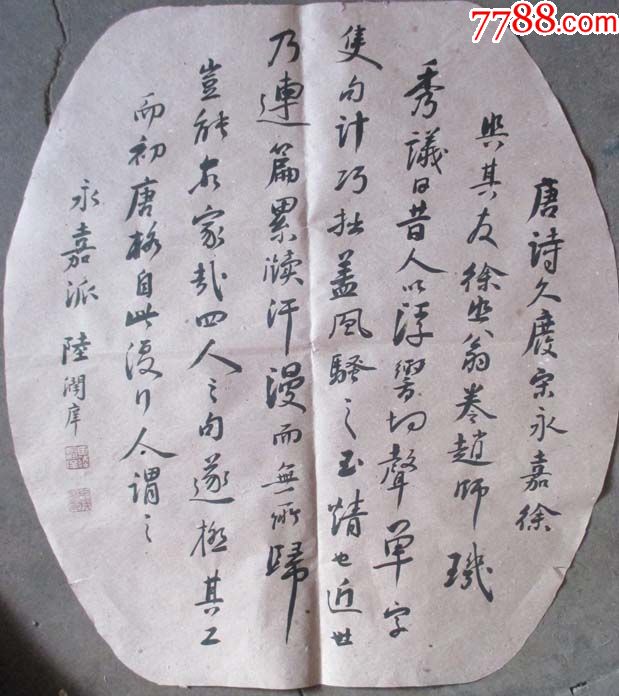 7788.com
唐詩久廢宋永嘉徐
與其友徐照翁卷趙師璣
秀議曰昔人以浮響切聲單字
隻句計巧拙蓋風騷之至精也近世
乃連篇累牘汗漫而無所歸
豈能名家哉四人之句遂極其工
而初唐格自此復行人謂之
永嘉派 陸潤庠